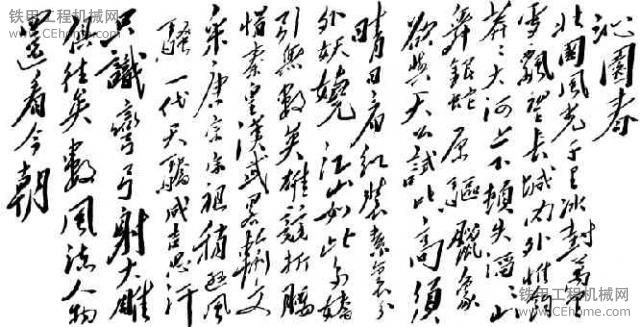 铁甲工程机械网
www.CEhome.com
铁甲工程机械网
www.CEhome.com
沁園春
北國風光千里冰封萬里
雪飄望長城内外惟餘
莽〻大河上下頓失滔〻山
舞銀蛇原驅臘象
欲與天公試比高須
晴日看紅裝素裹分
外妖嬈江山如此多嬌
引無數英雄競折腰
惜秦皇漢武略輸文
采唐宗宋祖稍遜風
騷一代天驕成吉思汗
只識彎弓射大雕
俱往矣數風流人物
還看今朝
铁甲工程机械网
www.CEhome.com